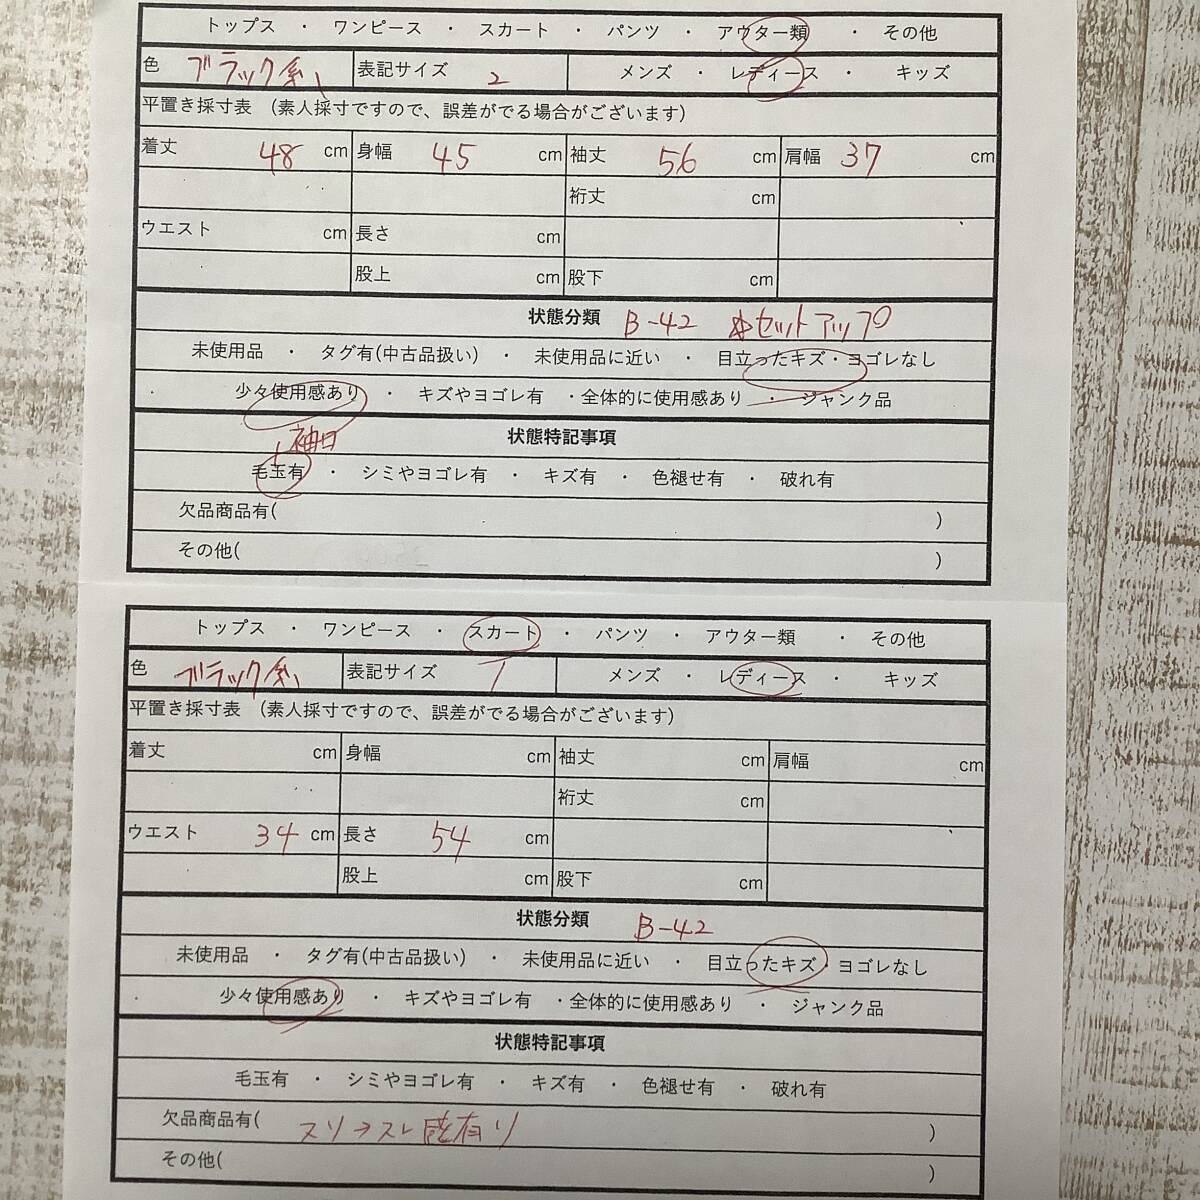 トップス ・ ワンピース ・ スカート ・ パンツ ・ アウター類 ・ その他
色 ブラック系 表記サイズ 2 メンズ ・ レディース ・ キッズ
平置き採寸表 (素人採寸ですので、誤差がでる場合がございます)
着丈 48 cm 身幅 45 cm 袖丈 56 cm 肩幅 37 cm
裄丈 cm
ウエスト cm 長さ cm
股上 cm 股下 cm
状態分類 B-42 ☆セットアップ
未使用品 ・ タグ有(中古品扱い) ・ 未使用品に近い ・ 目立ったキズ・ヨゴレなし
・ 少々使用感あり ・ キズやヨゴレ有 ・全体的に使用感あり ・ ジャンク品
袖口 状態特記事項
毛玉有 ・ シミやヨゴレ有 ・ キズ有 ・ 色褪せ有 ・ 破れ有
欠品商品有( )
その他( )
トップス ・ ワンピース ・ スカート ・ パンツ ・ アウター類 ・ その他
色 ブラック系 表記サイズ 1 メンズ ・ レディース ・ キッズ
平置き採寸表 (素人採寸ですので、誤差がでる場合がございます)
着丈 cm 身幅 cm 袖丈 cm 肩幅 cm
裄丈 cm
ウエスト 34 cm 長さ 54 cm
股上 cm 股下 cm
状態分類 B-42
未使用品 ・ タグ有(中古品扱い) ・ 未使用品に近い ・ 目立ったキズ・ヨゴレなし
・ 少々使用感あり ・ キズやヨゴレ有 ・全体的に使用感あり ・ ジャンク品
状態特記事項
毛玉有 ・ シミやヨゴレ有 ・ キズ有 ・ 色褪せ有 ・ 破れ有
欠品商品有( スソ→スレ感有り )
その他( )